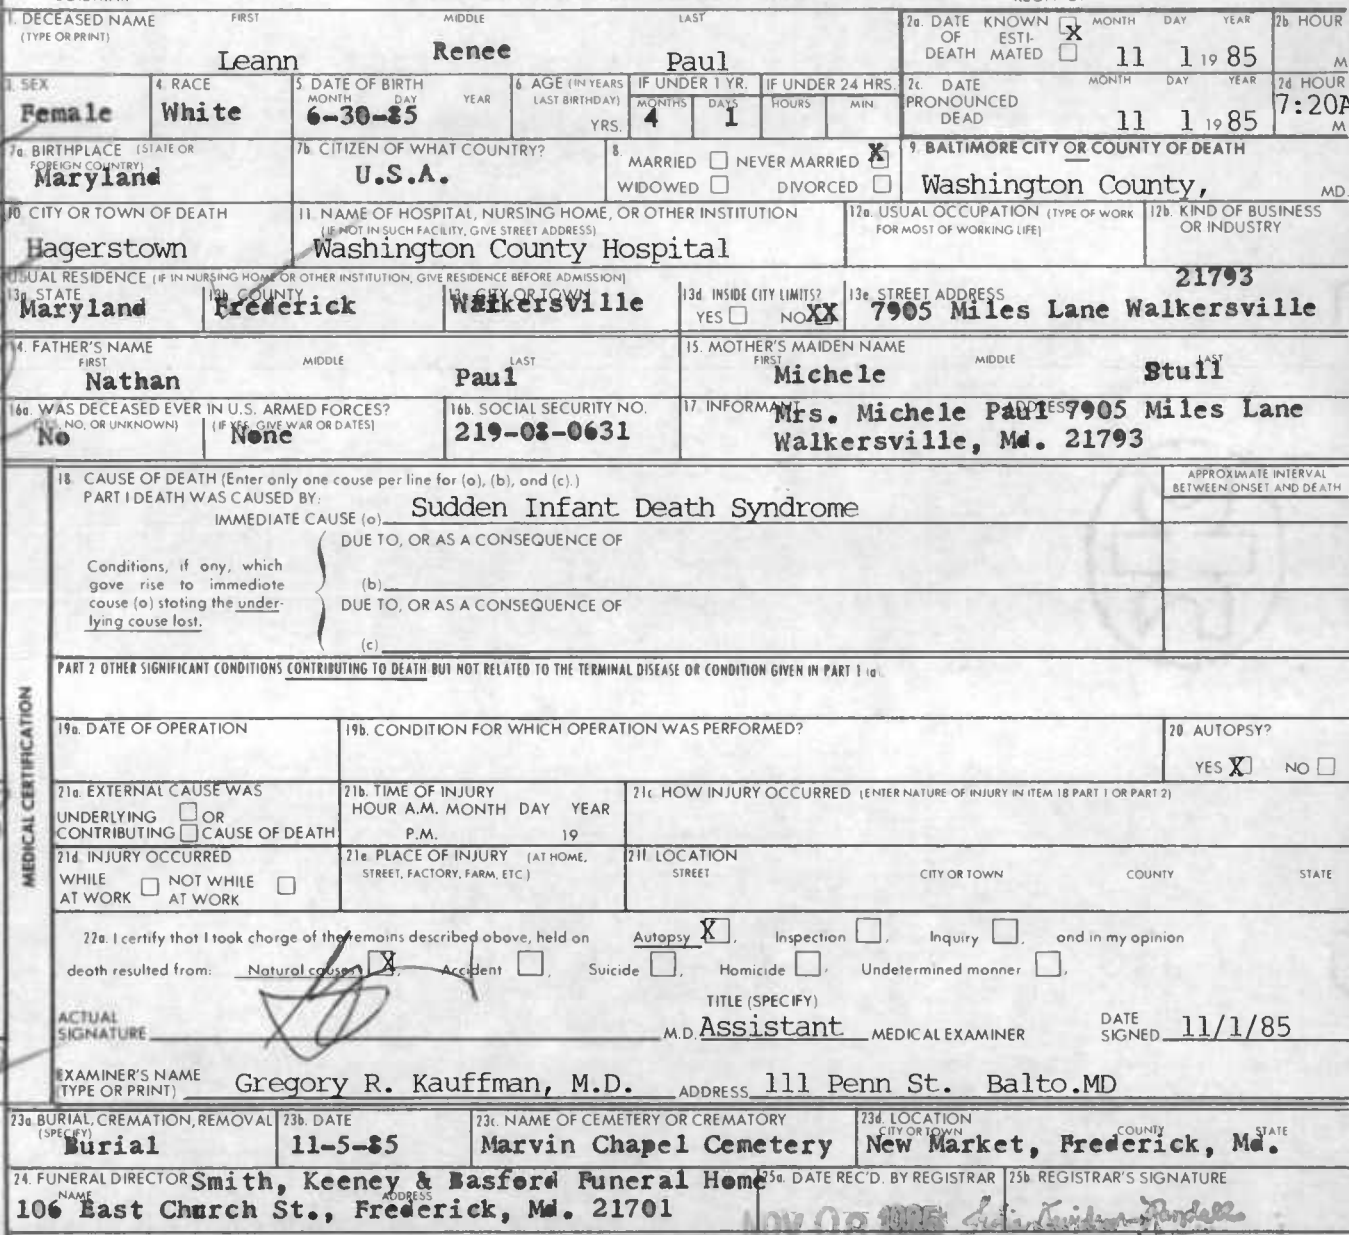 1. DECEASED NAME (TYPE OR PRINT) FIRST MIDDLE LAST
Leann Renee Paul
2a. DATE OF DEATH KNOWN X ESTIMATED MONTH DAY YEAR 11 1 1985
2b HOUR M
3. SEX Female
4. RACE White
5. DATE OF BIRTH MONTH DAY YEAR 6-30-85
6 AGE (IN YEARS LAST BIRTHDAY) YRS.
IF UNDER 1 YR. MONTHS 4 DAYS 1
IF UNDER 24 HRS. HOURS MIN.
2c. DATE PRONOUNCED DEAD MONTH DAY YEAR 11 1 1985
2d HOUR 7:20A M
7a BIRTHPLACE (STATE OR FOREIGN COUNTRY) Maryland
7b. CITIZEN OF WHAT COUNTRY? U.S.A.
8. MARRIED NEVER MARRIED X
WIDOWED DIVORCED
9. BALTIMORE CITY OR COUNTY OF DEATH
Washington County, MD.
10 CITY OR TOWN OF DEATH Hagerstown
11 NAME OF HOSPITAL, NURSING HOME, OR OTHER INSTITUTION
(IF NOT IN SUCH FACILITY, GIVE STREET ADDRESS)
Washington County Hospital
12a. USUAL OCCUPATION (TYPE OF WORK FOR MOST OF WORKING LIFE)
12b. KIND OF BUSINESS OR INDUSTRY
USUAL RESIDENCE (IF IN NURSING HOME OR OTHER INSTITUTION, GIVE RESIDENCE BEFORE ADMISSION)
13a STATE Maryland
13b COUNTY Frederick
13c CITY OR TOWN Walkersville
13d. INSIDE CITY LIMITS? YES NO XX
13e. STREET ADDRESS 21793
7905 Miles Lane Walkersville
14. FATHER'S NAME FIRST MIDDLE LAST
Nathan Paul
15. MOTHER'S MAIDEN NAME FIRST MIDDLE LAST
Michele Stull
16a. WAS DECEASED EVER IN U.S. ARMED FORCES?
(YES, NO, OR UNKNOWN) (IF YES, GIVE WAR OR DATES)
No None
16b. SOCIAL SECURITY NO.
219-08-0631
17 INFORMANT ADDRESS
Mrs. Michele Paul 7905 Miles Lane
Walkersville, Md. 21793
MEDICAL CERTIFICATION
18 CAUSE OF DEATH (Enter only one cause per line for (a), (b), and (c).)
APPROXIMATE INTERVAL BETWEEN ONSET AND DEATH
PART I DEATH WAS CAUSED BY:
IMMEDIATE CAUSE (a) Sudden Infant Death Syndrome
DUE TO, OR AS A CONSEQUENCE OF
Conditions, if any, which
gave rise to immediate
cause (a) stating the under-
lying cause last.
(b)
DUE TO, OR AS A CONSEQUENCE OF
(c)
PART 2 OTHER SIGNIFICANT CONDITIONS CONTRIBUTING TO DEATH BUT NOT RELATED TO THE TERMINAL DISEASE OR CONDITION GIVEN IN PART 1 (a)
19a. DATE OF OPERATION
19b. CONDITION FOR WHICH OPERATION WAS PERFORMED?
20 AUTOPSY?
YES X NO
21a. EXTERNAL CAUSE WAS
UNDERLYING OR
CONTRIBUTING CAUSE OF DEATH
21b. TIME OF INJURY
HOUR A.M. MONTH DAY YEAR
P.M. 19
21c HOW INJURY OCCURRED (ENTER NATURE OF INJURY IN ITEM 18 PART 1 OR PART 2)
21d INJURY OCCURRED
WHILE AT WORK NOT WHILE AT WORK
21e PLACE OF INJURY (AT HOME, STREET, FACTORY, FARM, ETC.)
21f LOCATION
STREET CITY OR TOWN COUNTY STATE
22a. I certify that I took charge of the remains described above, held on Autopsy X, Inspection, Inquiry, and in my opinion
death resulted from: Natural causes X, Accident, Suicide, Homicide, Undetermined manner,
ACTUAL SIGNATURE
M.D.
TITLE (SPECIFY)
Assistant MEDICAL EXAMINER
DATE SIGNED 11/1/85
EXAMINER'S NAME (TYPE OR PRINT) Gregory R. Kauffman, M.D. ADDRESS 111 Penn St. Balto.MD
23a BURIAL, CREMATION, REMOVAL (SPECIFY) Burial
23b. DATE 11-5-85
23c. NAME OF CEMETERY OR CREMATORY
Marvin Chapel Cemetery
23d. LOCATION CITY OR TOWN COUNTY STATE
New Market, Frederick, Md.
24. FUNERAL DIRECTOR NAME ADDRESS
Smith, Keeney & Basford Funeral Home
106 East Church St., Frederick, Md. 21701
25a. DATE REC'D. BY REGISTRAR
25b. REGISTRAR'S SIGNATURE